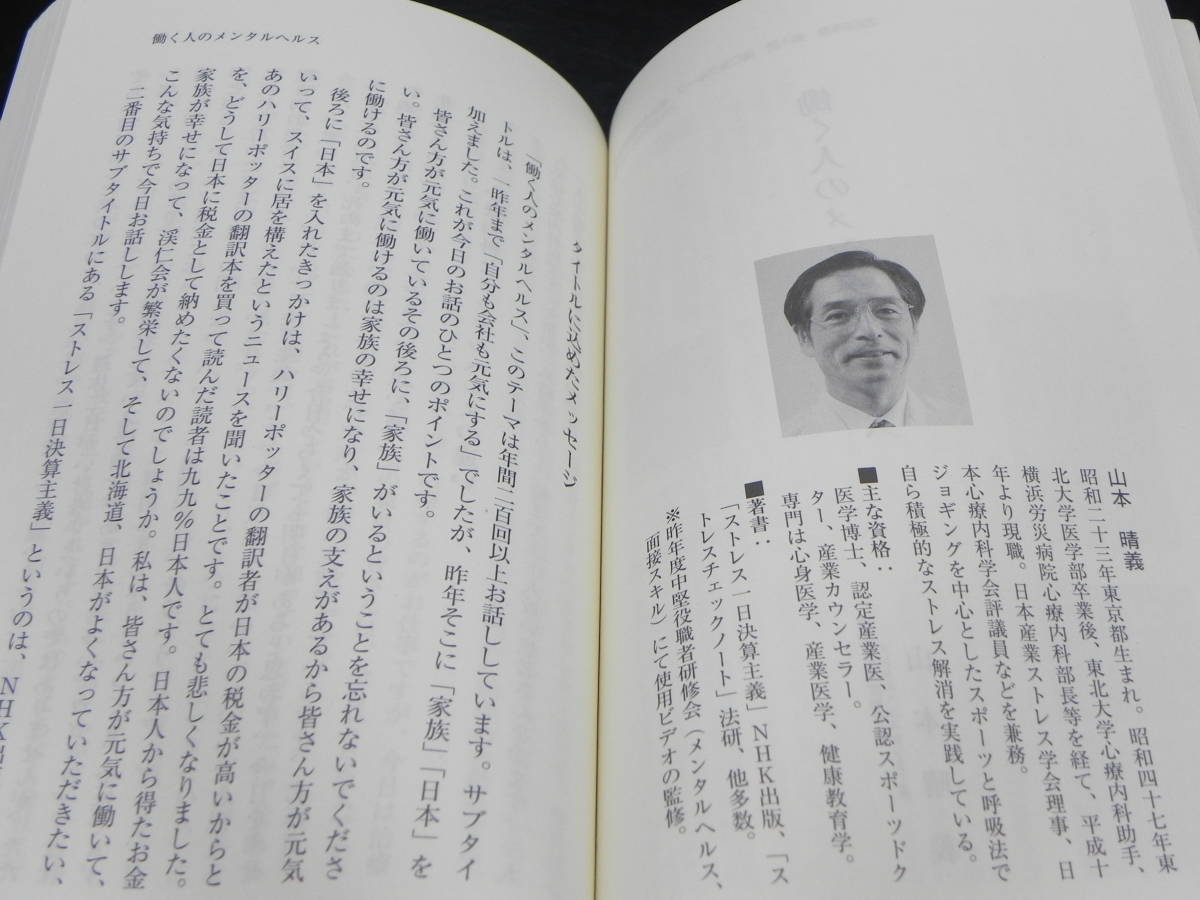 山本 晴義
昭和二十三年東京都生まれ。昭和四十七年東
北大学医学部卒業後、東北大学心療内科助手、
横浜労災病院心療内科部長等を経て、平成十
年より現職。日本産業ストレス学会理事、日
本心療内科学会評議員などを兼務。
ジョギングを中心としたスポーツと呼吸法で
自ら積極的なストレス解消を実践している。
■主な資格：
医学博士、認定産業医、公認スポーツドク
ター、産業カウンセラー。
専門は心身医学、産業医学、健康教育学。
■著書：
「ストレス一日決算主義」NHK出版、「ス
トレスチェックノート」法研、他多数。
※昨年度中堅役職者研修会（メンタルヘルス、
面接スキル）にて使用ビデオの監修。
働く人のメンタルヘルス
タイトルに込めたメッセージ
「働く人のメンタルヘルス」、このテーマは年間二百回以上お話ししています。サブタイ
トルは、一昨年まで「自分も会社も元気にする」でしたが、昨年そこに「家族」「日本」を
加えました。これが今日のお話のひとつのポイントです。
皆さん方が元気に働いているその後ろに、「家族」がいるということを忘れないでくださ
い。皆さん方が元気に働けるのは家族の幸せになり、家族の支えがあるから皆さん方が元気
に働けるのです。
後ろに「日本」を入れたきっかけは、ハリーポッターの翻訳者が日本の税金が高いからと
いって、スイスに居を構えたというニュースを聞いたことです。とても悲しくなりました。
あのハリーポッターの翻訳本を買って読んだ読者は九九%日本人です。日本人から得たお金
を、どうして日本に税金として納めたくないのでしょうか。私は、皆さん方が元気に働いて、
家族が幸せになって、渓仁会が繁栄して、そして北海道、日本がよくなっていただきたい、
こんな気持ちで今日お話しします。
二番目のサブタイトルにある「ストレス一日決算主義」というのは、NHK出